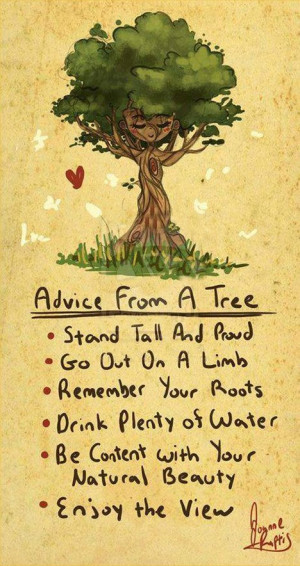 Advice From A Tree
• Stand Tall And Proud
• Go Out On A Limb
• Remember Your Roots
• Drink Plenty of Water
• Be Content with Your
Natural Beauty
• Enjoy the View
Joanne
Raptis